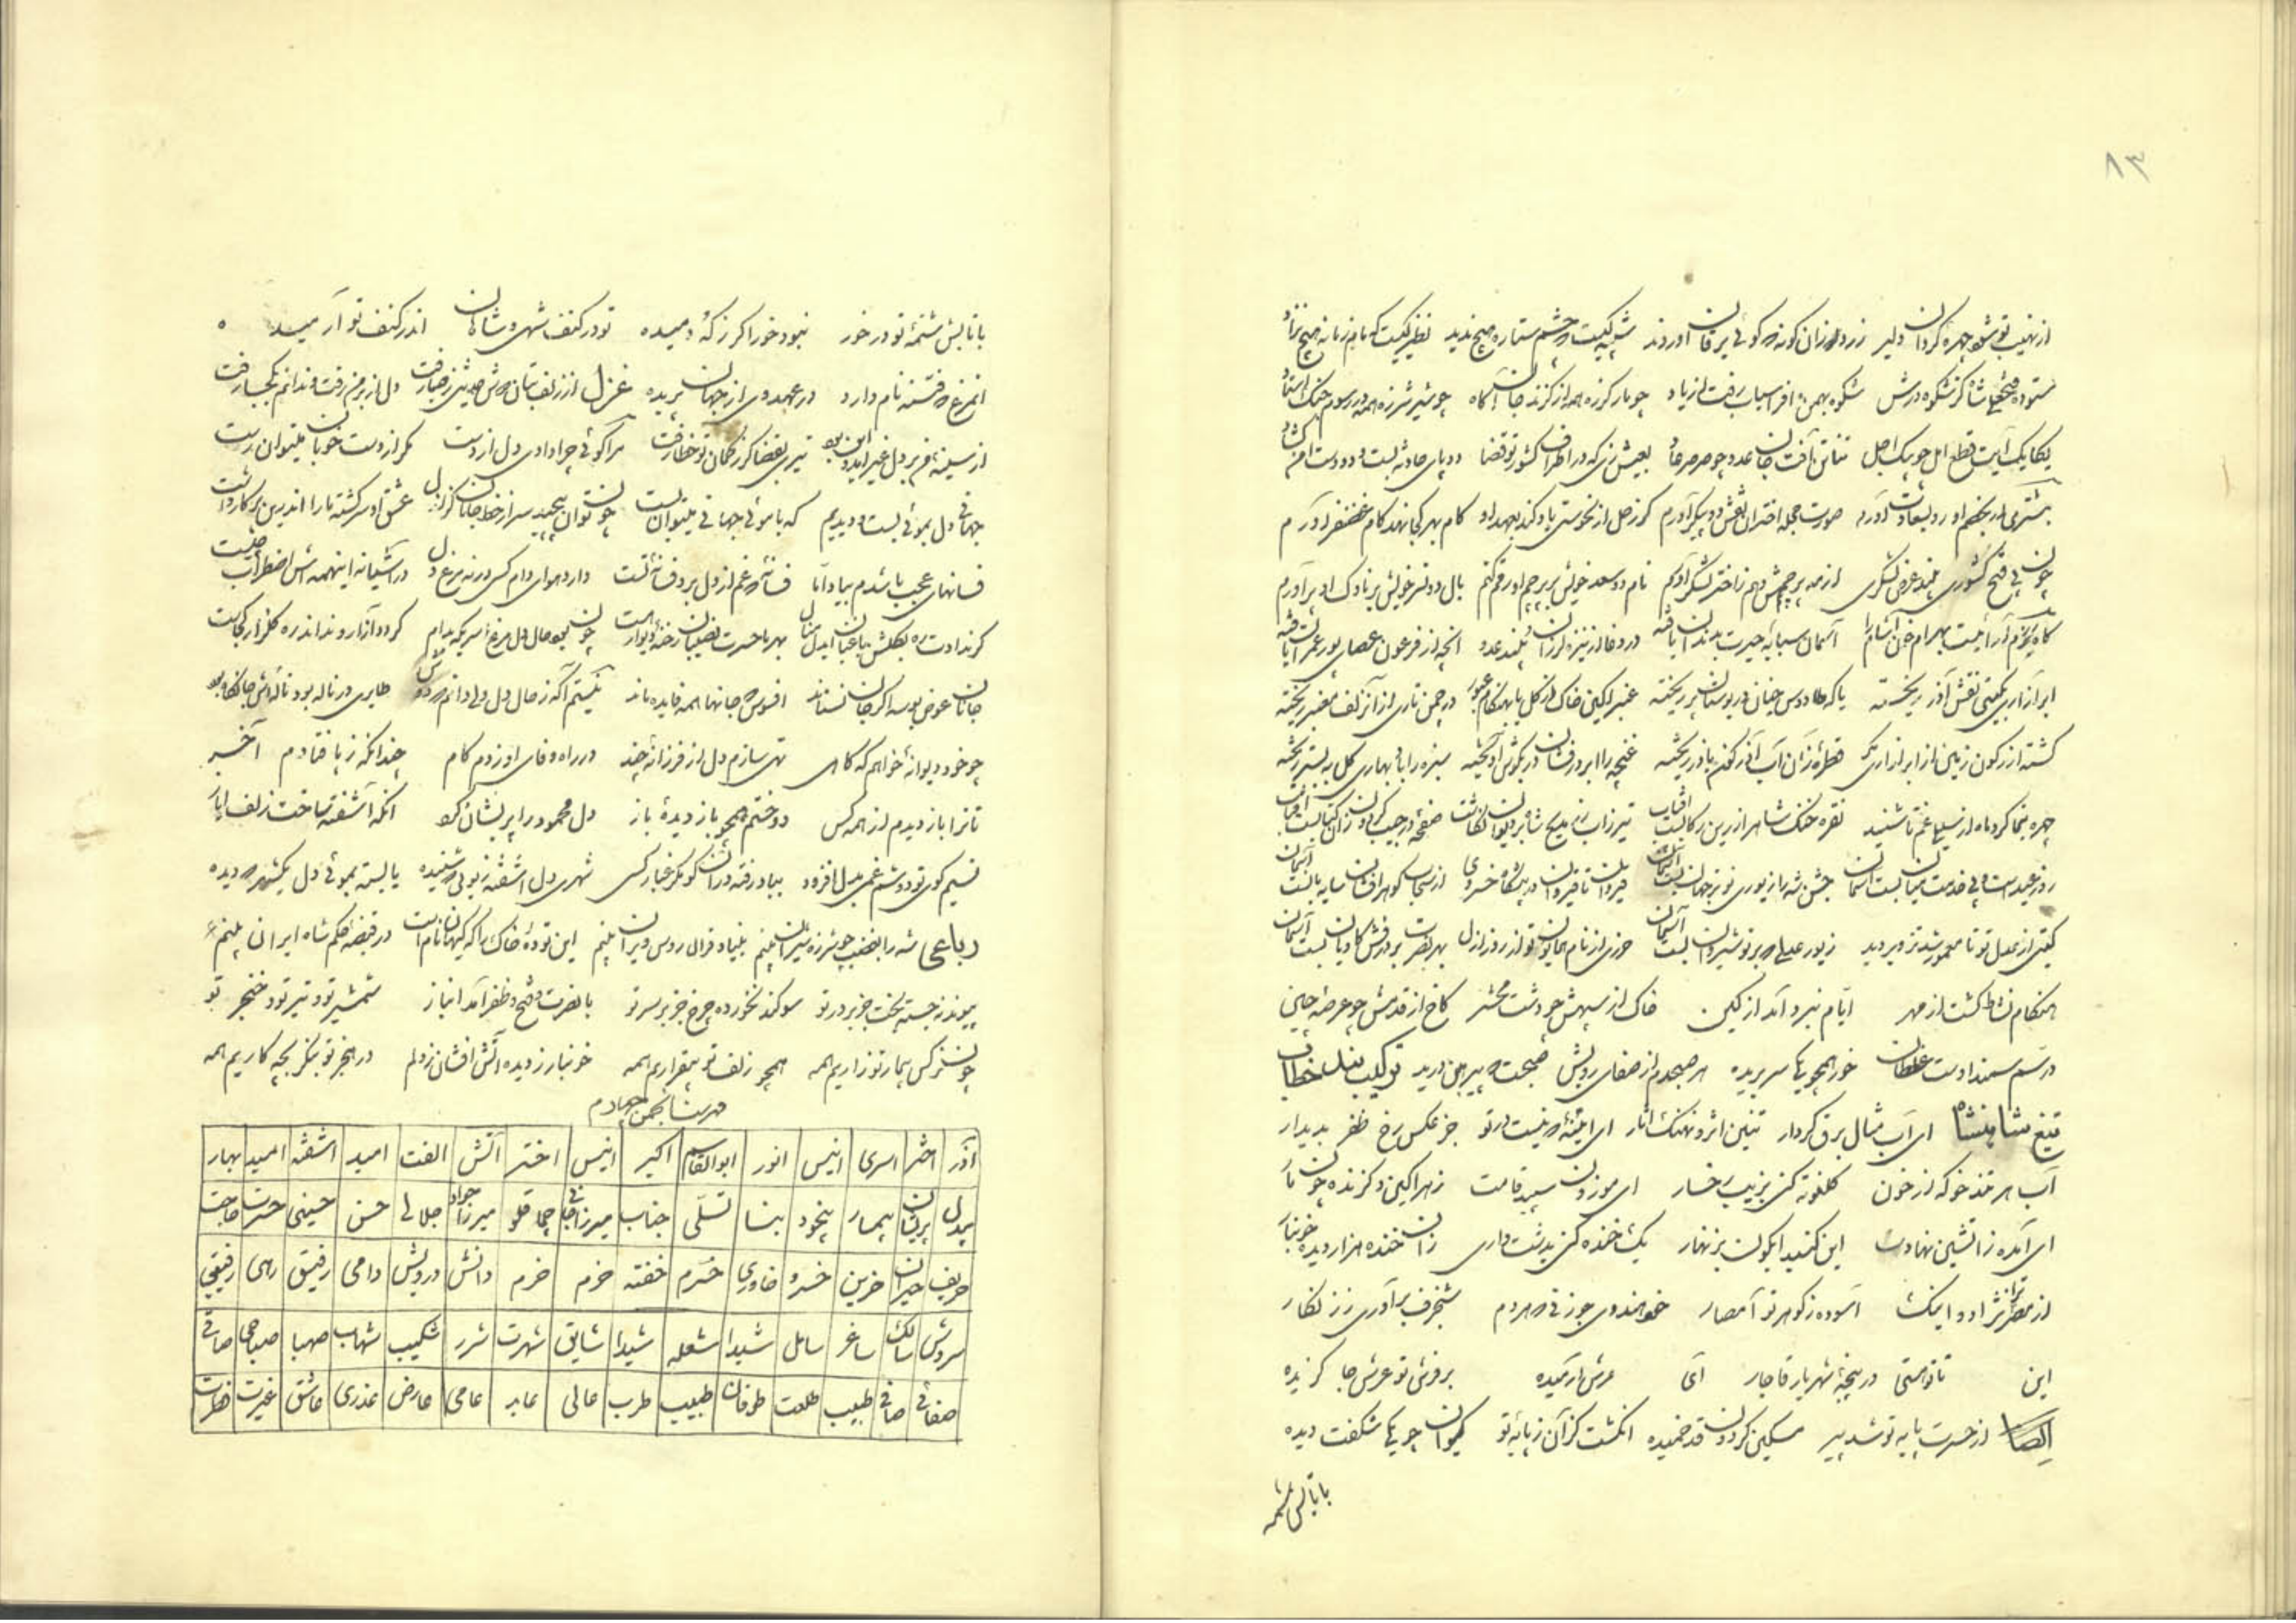 ۸۳
از نهیب تو شود چهره گردان دلیر زرد از زان گونه که گوئی یرقان آوردند شبیه کیست که چشم ستاره هیچ ندید نظیر کیست که مام زمانه هیچ نزاد
ستوده فتحعلیشاه کز شکوه درش شکوه بهمن و افراسیاب رفت از یاد چو مار گرزه همه از گزند جان آگاه چو شیر شرزه همه در رسوم جنگ استاد
یکایک آیت قطع امل چو پیک اجل تنانی آفت جان عدو چو صرصر عاد بعیش زی که در اطراف کشور تو قضا دو پای حادثه بست و دو دست امن گشاد
مشتری از بخشم او رو بسعادت آورد صورت مجله اختران نعش دو پیکر آورم کر زحل از نحوستی یاد کند بعهد او کام بهر کجا نهد کام غضنفر آورم
چون پی فتح کشوری بیند عرض لشکری از مه پرچمش دهم ز اختر لشکر آورم نام دو سعد خویش بر پرچم او رقم کنم بال دو نسر خویش بر ناوک او پر آورم
گاه بزم آرائیت بهرام خون آشام را آسمان سبابه حیرت بدندان یافته در وغا از نیزه لرزان بیند عدو آنچه از فرعون عصای پور عمران یافته
ابر آزاری بگیتی نقش آذر ریخته یا که طاوس جنان در بوستان پر ریخته عنبر آگین خاک از گل یا بهنگام عبور در چمن تاری از آن زلف معنبر ریخته
گشته آذرگون زمین از ابر آزاری مگر قطره زان آب آذرگونم باذر ریخته غنچه را ابر درفشان در بگوش آویخته سبزه را باد بهاری گل به بستر ریخته
چهره بنما کرد ماه از نسیلی غم تا شنید نقره خنگ شاه را زرین رکابست آفتاب
روز عیدست و پی خدمت میان بست آسمان جشن شه را زیوری نو بر جهان بست آسمان قیروان تا قیروان در پیشگاه خسروی از سحاب گوهر افشان سایه بان بست آسمان
گیتی از عدل تو تا معمور شد تزویر دید زیور عدلی که بر نوشیروان بست آسمان حرزی از نام همایون تو از روز ازل بهر نصرت بر درفش کاویان بست آسمان
هنگام نشاط گشت از مهر ایام نبرد آمد از کین خاک از سپهش چو دشت محشر کاخ از قدمش چو عرصه چین
در سم سمندا وست غلطان خور همچو یکی سر بریده هر صبحدم از صفای رویش صبحست که پیرهن دریده ترکیب بند خطاب
تیغ شاهنشاه ای آب مثال برق کردار تنین اثر و نهنگ آثار ای آینه که نیست در تو جز عکس رخ ظفر پدیدار
آب هر مذ خو که از خون گلگونه کنی بزیب رخسار ای موزون سپید قامت زهر آگین و گزنده چون مار
ای آمده ز آتشین نهادت این گنبد آبگون بزنهار یک خنده کنی بدشت و آری زان خنده هزار دیده خونبار
از مصر نژاد و اینک آسوده ز گوهر تو امصار خو هندوی چو زنی که هر دم شنجرف بر آوری ز زنگار
این تا تو هستی در پنجه شهریار قاجار ای عرش آرمیده بر فرش تو عرش جا گزیده
ایضا از حسرت پایه تو شد پیر مسکین گردون قد خمیده انگشت گزان ز پایه تو کیوان چو یکی شگفت دیده
با تابش شمه
با تابش شمه تو در خور نبود خور اگر ز که دمیده تو در کنف شهی و شاهان اندر کنف تو آرمیده
آنمرغ که فتنه نام دارد در عهد وی از جهان پریده غزل از زلف بتان خوش حدیثی ز خطا رفت دل از بر من رفت و ندانم بکجا رفت
از سینه من بر دل غیر آمد و این بود تیری بقضا کز کمان تو خطا رفت مرا گوئی چرا دادی دل از دست مگر از دست خوبان میتوان رست
جهانی دل بموئی بست و دیدیم که با موئی جهانی میتوان بست چون توان پیچید سر از خط جانان کز ازل عشق او سرگشته ما را اندرین پرگار داشت
فسانهای عجب باشدم بیاد اما فسانه که غم از دل برد فسانه تست دارد هوای دام کسی ورنه مرغ دل در آشیانه اینهمه اش اضطراب چیست
گر ندادت ره بگلشن باغبان ایدل منال بهر ما حسرت نصیبان رخنه دیوار هست چون بود حال دل مرغ اسیری که مدام گردد آزاد و نداند ره گلزار کجاست
جانان عوض بوسه اگر جان نستاند افسوس که جانها همه فایده ماند نیستم آگه ز حال دل ولی دانم که دوش طایری در ناله بود و ناله اش جانکاه بود
چو خود دیوانه خواهم که گاهی تهی سازم دل از فرزانه چند در راه وفای او زدم گام چندانکه ز پا فتادم آخر
تا ترا باز دیدم از همه کس دوختم همچو باز دیده باز دل محمود را پریشان کرد آنکه آشفته ساخت زلف ایاز
نسیم کوی تو دوشم غمی بدل افزود مباد رفته در آن کو مگر غبار کسی شهری دل آشفته ز بوئی که شنیده یا بسته بموئی دل یکشهر که دیده
رباعی شه را بغضب چو شرزه شیران بینم بنیاد قرال روس ویران بینم این توده خاک را که کیهان نام است در قبضه حکم شاه ایران بینم
پیوند نجسته بخت جز بر در تو سوگند نخورده چرخ جز بر سر تو با نصرت و فتح و ظفر آمد انباز شمشیر تو و تیر تو و خنجر تو
چون نرگس بیمار تو زاریم همه همچو زلف تو بیقراریم همه خونبار ز دیده آتش افشان ز دلم در هجر تو بنگر بچه کاریم همه
فهرست انجمن چهارم
آذر اختر اسری انیس انور ابوالقاسم اکبر انیس اختر آتش الفت امید آشفته امید بهار
بیدل پریشان بیمار بیخود بینا تسلی جناب میرزا جانی چماقلو میرزا جواد جلالی حسن حسینی حسرت حاجت
حریف حیران حزین خسرو خاوری خرم خفته خرم خرم دانش درویش دامی رفیق رهی رفیقی
سروش سالک ساغر سامل شیدا شعله شیدا شایق شهرت شرر شکیب شهاب صهبا صباحی صافی
صفائی صافی طبیب طلعت طوفان طبیب طرب عالی عابد عامی عارض عذری عاشق غیرت